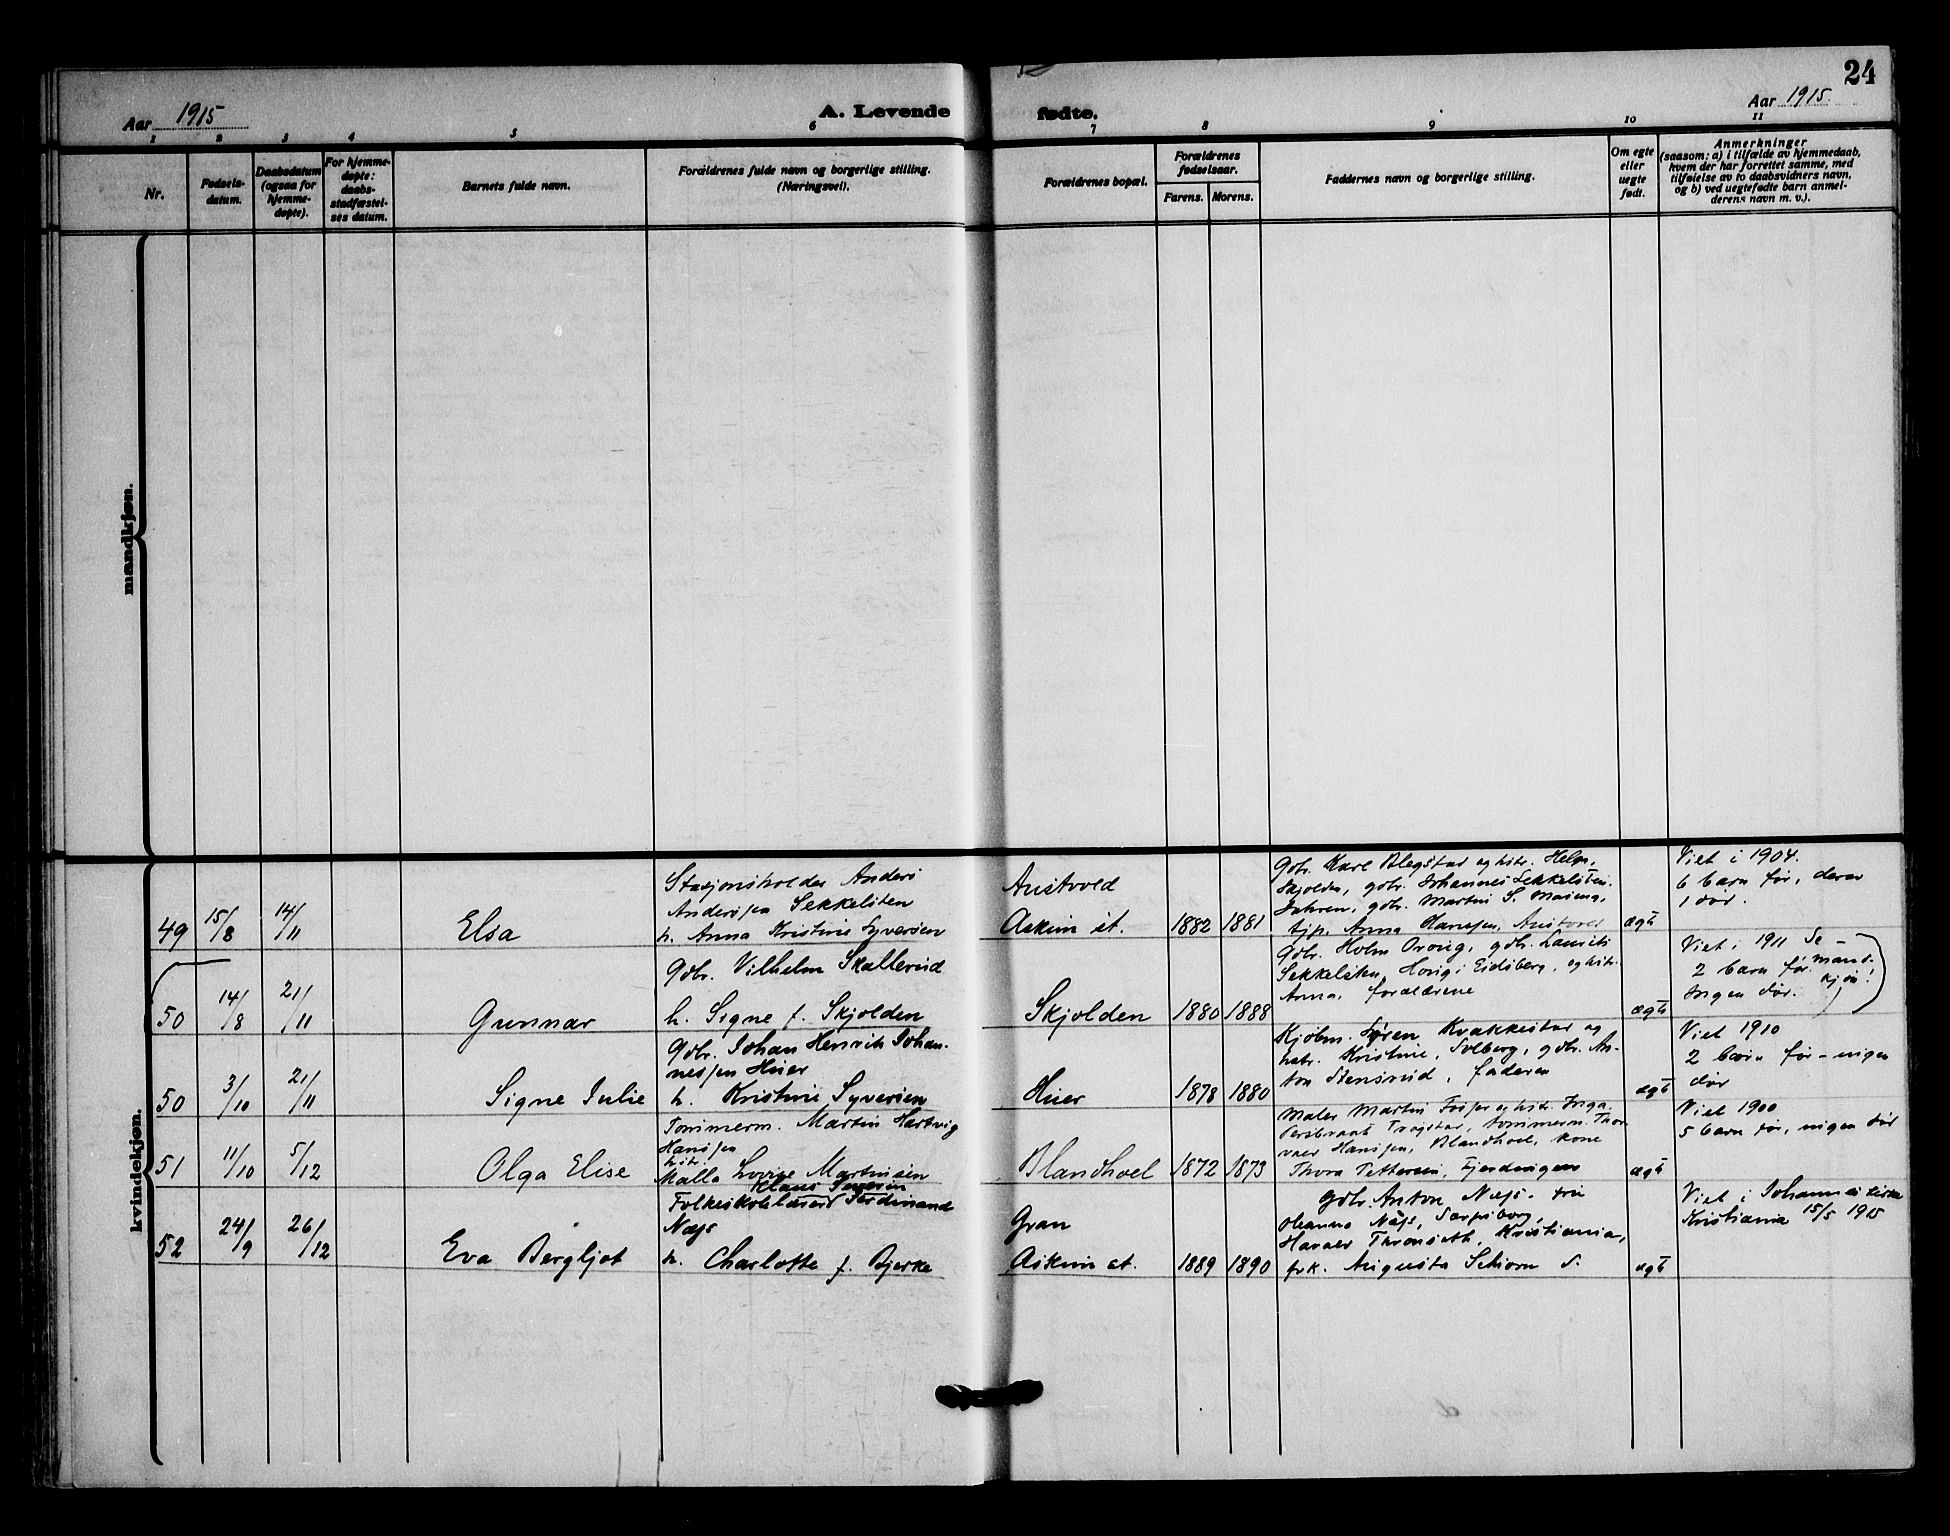 24
Aar 1915
A. Levende fødte.
Aar 1915.
1 2 3 4 5 6 7 8 9 10 11
Nr.
Fødsels-
datum.
Daabsdatum
(ogsaa for
hjemme-
døpte).
For hjemme-
døpte:
daabs-
stadfæstel-
ses datum.
Barnets fulde navn.
Forældrenes fulde navn og borgerlige stilling.
(Næringsvei).
Forældrenes bopæl.
Forældrenes
fødselsaar.
Farens. Morens.
Faddernes navn og borgerlige stilling.
Om egte
eller
uegte
født.
Anmerkninger
(saasom: a) i tilfælde av hjemmedaab,
hvem der har forrettet samme, med
tilføielse av to daabsvidners navn,
og b) ved uegtefødte barn anmel-
derens navn m. v.).
mandkjøn.
kvindekjøn.
49
15/8
14/11
Elsa
Stasjonsholder Anders
Andersen Sekkelsten
h. Anna Kristine Syversen
Austvold
Askim st.
1882 1881
Gdbr. Karl Blegstad og hstr. Helga,
Skjolden, gdbr. Johannes Sekkelsten,
gdbr. Martin S.
Anna Hansen, Austvold
ægte
Viet i 1904.
6 barn før, derav
1 dør.
50
14/8
21/11
Gunnar
Gdbr. Vilhelm Skallerud
h. Signe f. Skjolden
Skjolden
1880 1888
Gdbr. Holm Ovrug, gdbr. Laurits
Sekkelsten, Eidsberg, og hstr.
Anna, forældrene
ægte
Viet i 1911 Se
2 barn før. mand-
Ingen dør. kjøn!
50
3/10
21/11
Signe Julie
Gdbr. Johan Henrik Johan-
nesen Huer
h. Kristine Syversen
Huer
1878 1880
Kjøbm. Søren Kvakkestad og
hstr. Kristine, Solberg, gdbr. An-
ton Stensrud, faderen
ægte
Viet 1910
2 barn før - ingen
dør
51
11/10
5/12
Olga Elise
Tømmerm. Martin Hartvig
Hansen
hstr.
Malla Lovise Martinsen
Blandhoel
1872 1873
Maler Martin og hstr. Inga
Trøgstad, tømmerm. Thor
vald Hansen, Blandhoel, kone
Thora Pettersen, Fjerdingen
ægte
Viet 1900
5 barn før, ingen dør
52
24/9
26/12
Eva Bergljot
Klaus Iversen
Folkeskolelærer Ferdinand
Næss
h. Charlotte f. Bjerke
Gran
Askim st.
1889 1890
Gdbr. Anton Næss, fru
Oleanna Næss, Sarpsborg,
Harald Thronseth, Kristiania,
frk. Augusta Schiorn S.
ægte
Viet i Johannes kirke
Kristiania 15/5 1915